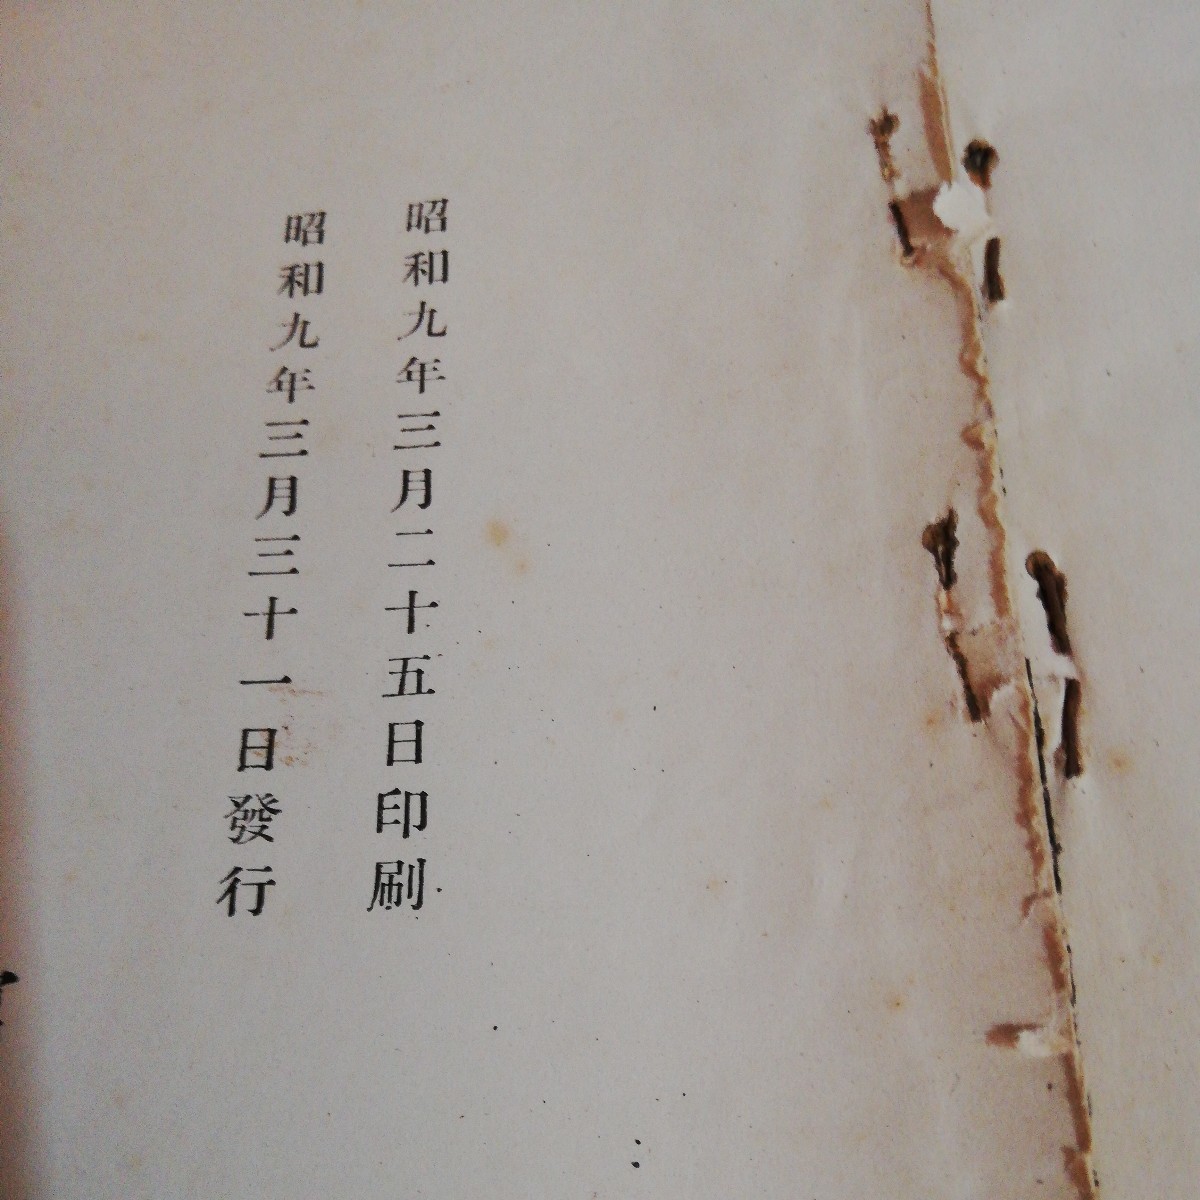 昭和九年三月二十五日印刷
昭和九年三月三十一日發行